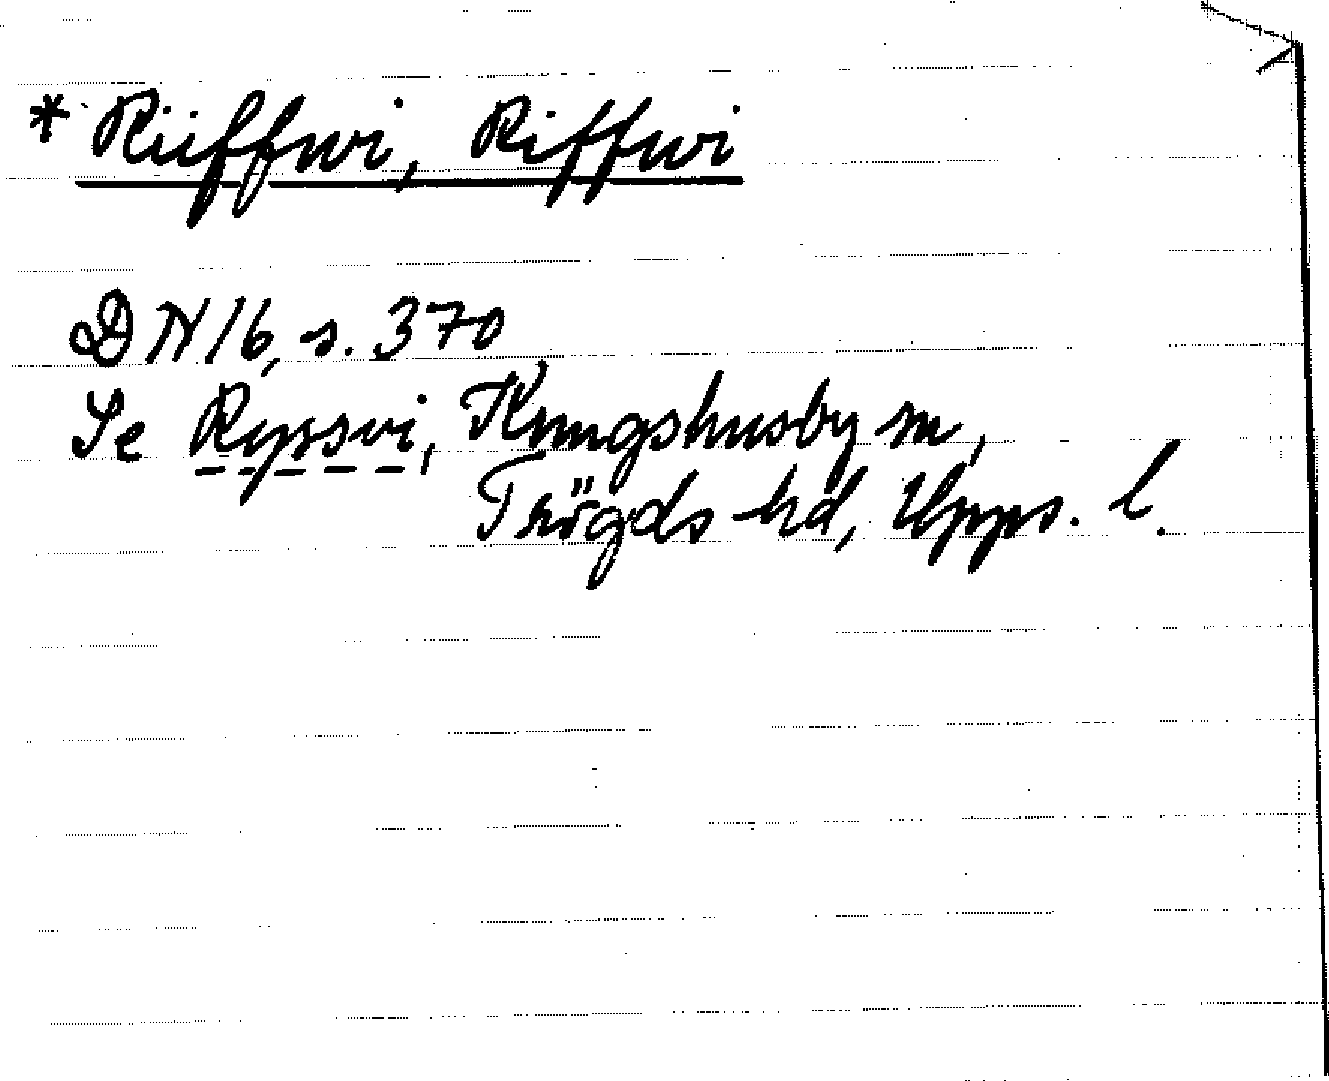 * Rüffwi, Riffwi
DN 16, s. 370
Se Ryssvi, Kungshusby sn,
Trögds hd, Upps. l.